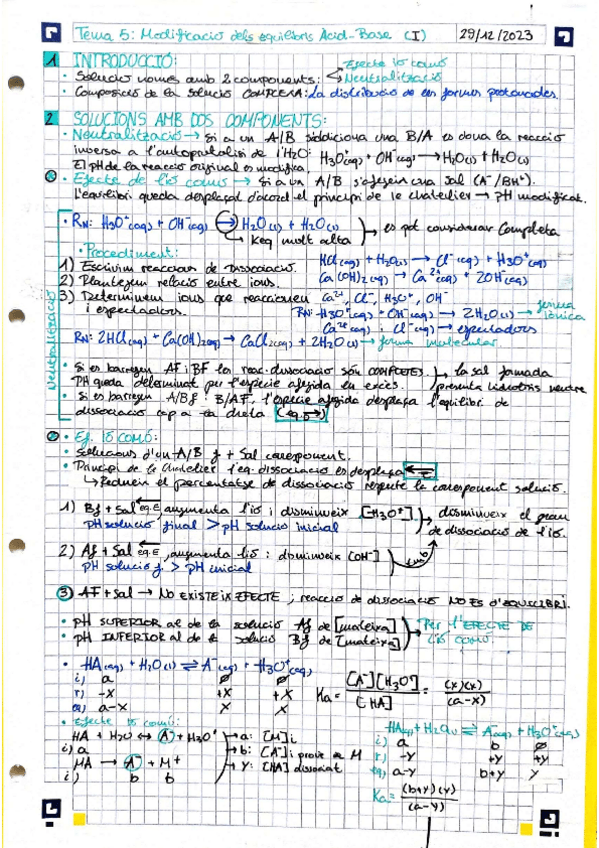 Tema 5: Modificació dels equilibris Àcid-Base (I) 29/12/2023
1 INTRODUCCIÓ:
· Solució només amb 2 components: Efecte ió comú
Neutralització
· Composició de la solució COMPLEXA: La distribució de les formes protonades.
2 SOLUCIONS AMB DOS COMPONENTS:
· Neutralització → Si a un A/B s'addiciona una B/A es dona la reacció
inversa a l'autoprotòlisi de l'H2O: H3O+(aq) + OH-(aq) → H2O(l) + H2O(l)
El pH de la reacció original es modifica.
· Efecte de l'ió comú → Si a un A/B s'afegeix una sal (A-/BH+).
L'equilibri queda desplaçat d'acord el principi de le chatelier → pH modificat.
· Rn: H3O+(aq) + OH-(aq) → H2O(l) + H2O(l) → es pot considerar completa
↳ Keq molt alta
· Procediment:
1) Escrivim reaccions de dissociació. HCl(aq) + H2O(l) → Cl-(aq) + H3O+(aq)
2) Plantegem relació entre ions. Ca(OH)2(aq) → Ca2+(aq) + 2OH-(aq)
3) Determinem ions que reaccionen Ca2+, Cl-, H3O+, OH-
i espectadors. Rn: H3O+(aq) + OH-(aq) → 2H2O(l) → forma iònica
Ca2+(aq) i Cl-(aq) → espectadors
Rn: 2HCl(aq) + Ca(OH)2(aq) → CaCl2(aq) + 2H2O(l) → forma molecular.
Neutralització
· Si es barregen AF i BF la reac. dissociació són COMPLETES. → la sal formada
PH queda determinat per l'espècie afegida en excés. presenta hidròlisis neutre
· Si es barregen A/Bf i B/AF, l'espècie afegida desplaça l'equilibri de
dissociació cap a la dreta (eq →)
· Ef. ió comú:
· Solucions d'un A/B f + Sal corresponent.
· Principi de le chatelier l'eq. dissociació es desplaça ←
↳ Redueix el percentatge de dissociació respecte la corresponent solució.
1) Bf + Sal eq.E, augmenta l'ió i disminueix [H3O+]. disminueix el grau
pH solució final > pH solució inicial de dissociació de l'ió.
2) Af + Sal eq.E, augmenta l'ió i disminueix [OH-]
pH solució f. > pH inicial
3) AF + Sal → NO EXISTEIX EFECTE; reacció de dissociació NO ÉS D'EQUILIBRI.
· pH SUPERIOR al de la solució Af de [mateixa] → Per l'EFECTE DE
· pH INFERIOR al de la solució Bf de [mateixa] L'IÓ COMÚ
· HA(aq) + H2O(l) ⇌ A-(aq) + H3O+(aq)
i) a ∅ ∅
r) -x +x +x
eq) a-x x x
Ka = [A-][H3O+] / [HA] = (x)(x) / (a-x)
· Efecte ió comú:
HA + H2O ↔ A- + H3O+ → a: [M]i
i) a → b: [A-]i prové de M
MA → A- + M+ → y: [HA] dissociat
i) b b
HA(aq) + H2O(l) ⇌ A-(aq) + H3O+(aq)
i) a b ∅
r) -y +y +y
eq) a-y b+y y
Ka = (b+y)(y) / (a-y)